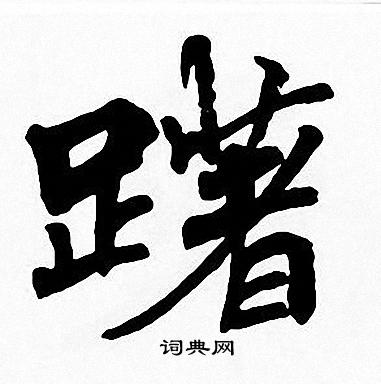 躇
词典网